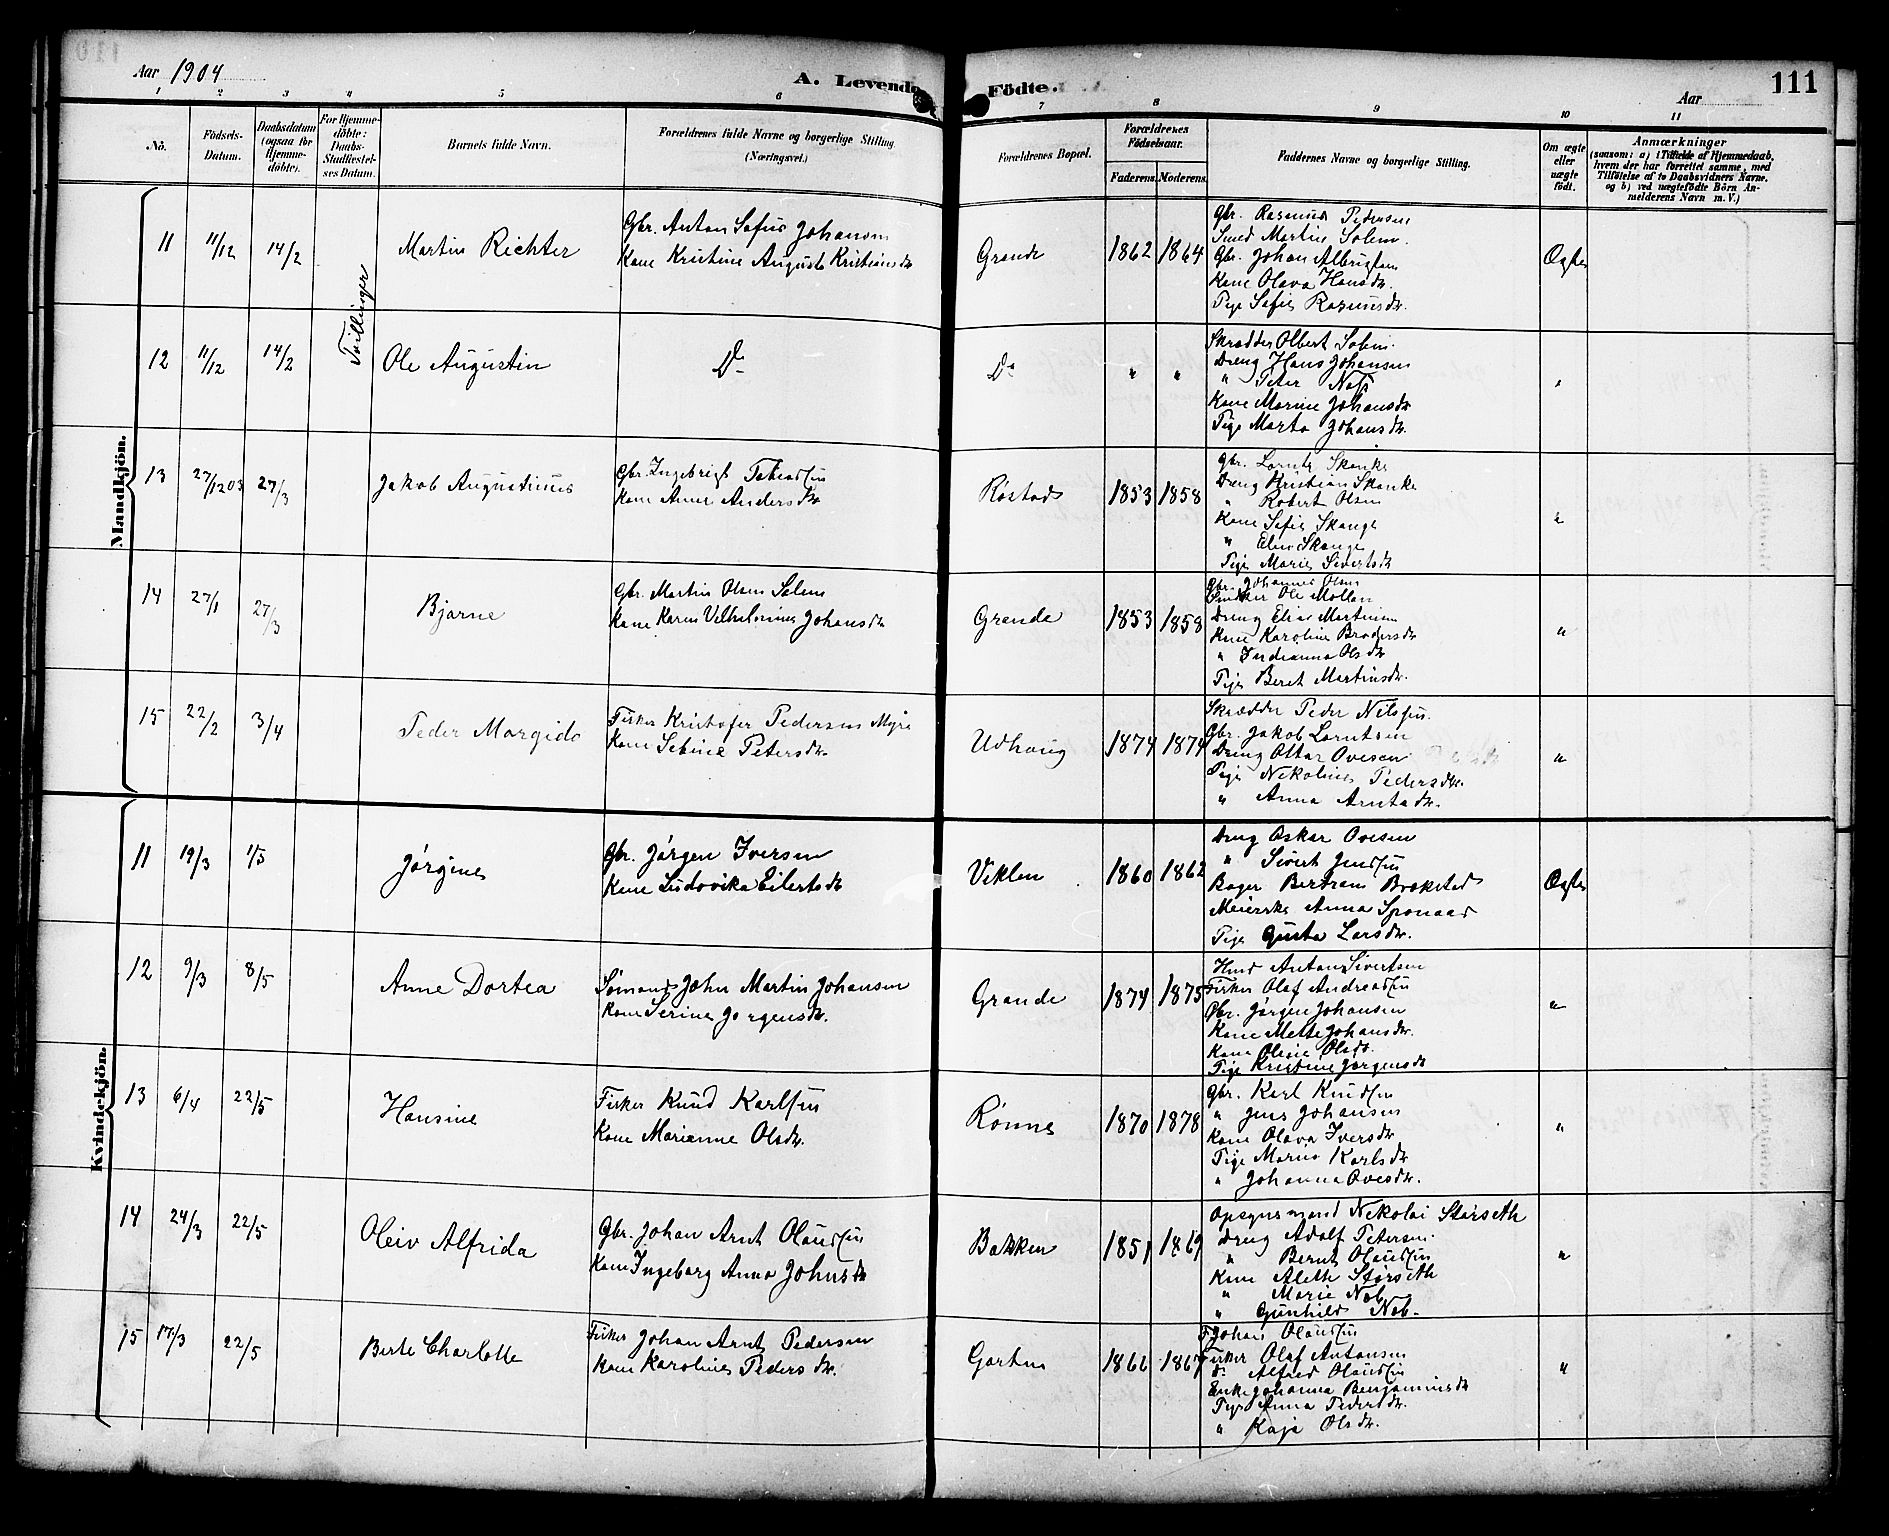 Aar 1904
A. Levende Födte.
Aar
111
1 2 3 4 5 6 7 8 9 10 11
No.
Födsels-Datum.
Daabsdatum (ogsaa for Hjemmedöbte).
For Hjemmedöbte: Daabs-Stadfæstelses Datum.
Barnets fulde Navn.
Forældrenes fulde Navne og borgerlige Stilling. (Næringsvei.)
Forældrenes Bopæl.
Forældrenes Födselsaar.
Faderens. Moderens.
Faddernes Navne og borgerlige Stilling.
Om ægte eller uægte födt.
Anmærkninger
(saasom: a) i Tilfælde af Hjemmedaab, hvem der har forrettet samme, med Tilföielse af to Daabsvidners Navne, og b) ved uægtefödte Börn Anmelderens Navn m. V.)
Mandkjön.
11 11/12 14/2 Tvillinger Martin Richter
Gbr. Anton Sefus Johansen
Kone Kristine Augusta Kristiansdtr
Grande 1862 1864
Gbr. Rasmus Pedersen
Smed Martin Solem.
Gbr. Johan Albrigtsen
Kone Olava Hansdtr.
Pige Sofie Rasmusdtr.
Ægte
12 11/12 14/2 Ole Augustin
Do
Do " "
Skrædder Olbert Solem.
Dreng Hans Johansen
" Peter
Kone Marine Johansdtr
Pige Marta Johansdtr.
"
13 27/12 03 27/3 Jakob Augustinus
Gbr. Ingebrigt Tobiassen
Kone Anne Andersdtr
Røstad 1853 1858
Gbr. Lornts Skanke
Dreng Kristian Skanke
" Robert Olsen
Kone Sofie Skange
" Elen Skange
Pige Marie Sivertsdtr
"
14 27/1 27/3 Bjarne
Gbr. Martin Olsen Solem
Kone Karen Vilhelmine Johansdtr
Grande 1853 1858
Gbr. Johannes Olsen
Ole Mollan
Dreng Elias Martinsen
Kone Karoline Brodersdtr
" Indianna Olsdtr
Pige Beret Martinsdtr.
"
15 22/2 3/4 Peder Margido
Fisker Kristofer Pedersen Myre
Kone Sebine Petersdtr.
Udhaug 1874 1874
Skrædder Peder Nilssen.
Gbr. Jakob Lorntsen
Dreng Ottar Ovesen
Pige Nekoline Pedersdtr.
" Anna Arntsdtr.
"
Kvindekjön.
11 19/3 1/5 Jørgine
Gbr. Jørgen Iversen
Kone Ludovika Eilertsdtr
Viklem 1860 1862
Dreng Oskar Ovesen
" Sivert Jenssen
Bager Bertram Brækstad
Meierske Anna Sponaas
Pige Gusta Larsdtr.
Ægte
12 9/3 8/5 Anne Dortea
Sømand John Martin Johansen
Kone Serine Jørgensdtr.
Grande 1874 1875
Hmd Anton Sivertsen
Fisker Olaf Andreassen
Gbr. Jørgen Johansen
Kone Mette Johansdtr.
Kone Olsdtr.
Pige Kristine Jørgensdtr
"
13 6/4 22/5 Hansine
Fisker Knud Karlsen
Kone Marianne Olsdtr.
Rønne 1870 1878
Gbr. Karl Knudsen
" Jens Johansen
Kone Olava Iversdtr
Pige Maria Karlsdtr
" Johanna Ovesdtr.
"
14 24/3 22/5 Oleiv Alfrida
Gbr. Johan Arnt Olaussen
Kone Ingeborg Anna Johnsdtr
Bakken 1851 1869
Opsynsmand Nekolai Størseth
Dreng Adolf Petersen.
" Bernt Olaussen
Kone Alette Størseth
" Marie Nob.
" Gunhild Nob.
"
15 17/3 22/5 Berte Charlotte
Fisker Johan Arnt Pedersen
Kone Karoline Pedersdtr.
Garten 1866 1867
F. Johan Olaussen
Fisker Olaf Antonsen
do Alfred Olaussen
Enke Johanna Benjaminsdtr
Pige Anna Pedersdtr.
" Kaja Olsdtr.
"